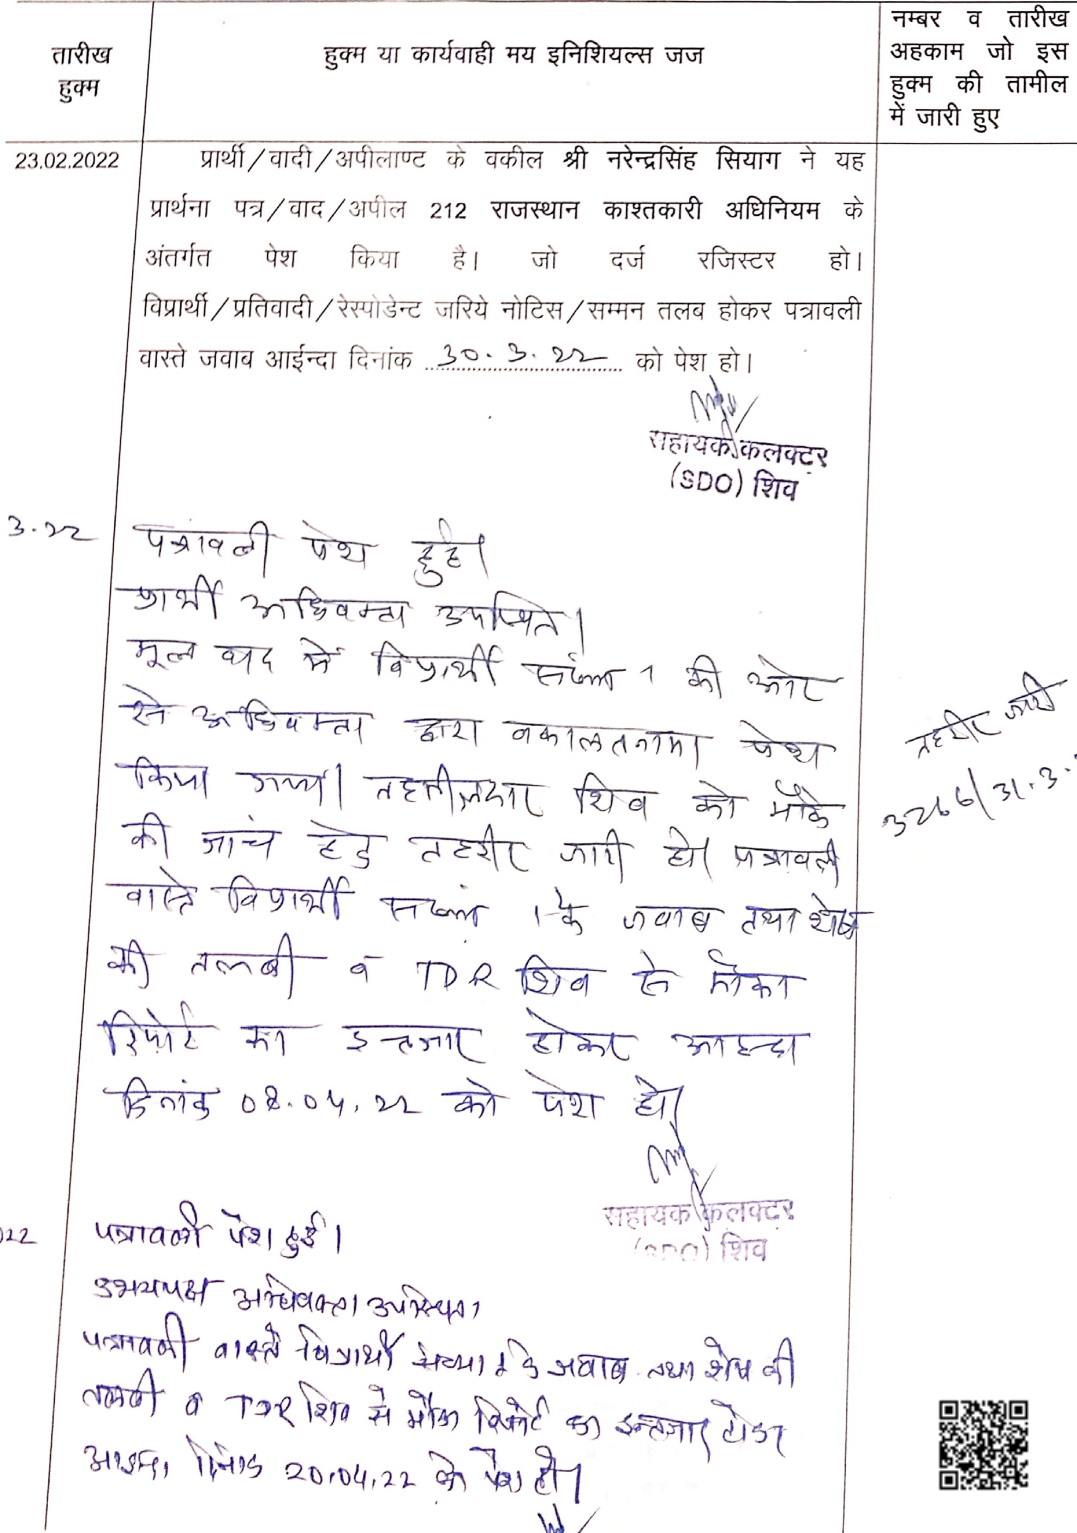 तारीख
हुक्म
हुक्म या कार्यवाही मय इनिशियल्स जज
नम्बर व तारीख
अहकाम जो इस
हुक्म की तामील
में जारी हुए
23.02.2022
प्रार्थी/वादी/अपीलाण्ट के वकील श्री नरेन्द्रसिंह सियाग ने यह
प्रार्थना पत्र/वाद/अपील 212 राजस्थान काश्तकारी अधिनियम के
अंतर्गत पेश किया है। जो दर्ज रजिस्टर हो।
विप्रार्थी/प्रतिवादी/रेस्पोडेन्ट जरिये नोटिस/सम्मन तलब होकर पत्रावली
वास्ते जवाब आईन्दा दिनांक 30.3.22 को पेश हो।
सहायक कलक्टर
(SDO) शिव
3.22
पत्रावली पेश हुई।
प्रार्थी अधिवक्ता उपस्थित।
मूल वाद में विप्रार्थी संख्या 1 की ओर
से अधिवक्ता द्वारा वकालतनामा पेश
किया गया। तहसीलदार शिव को मौके
की जांच हेतु तहरीर जारी हो। पत्रावली
वास्ते विप्रार्थी संख्या 1 के जवाब तथा शेष
की तलबी व TDR शिव से मौका
रिपोर्ट का इन्तजार होकर आइन्दा
दिनांक 08.04.22 को पेश हो।
तहरीर जारी
3266/31.3.
सहायक कलक्टर
(SDO) शिव
022
पत्रावली पेश हुई।
उभयपक्ष अधिवक्ता उपस्थित।
पत्रावली वास्ते विप्रार्थी संख्या 1 के जवाब तथा शेष की
तलबी व TDR शिव से मौका रिपोर्ट का इन्तजार होकर
आइन्दा दिनांक 20.04.22 को पेश हो।